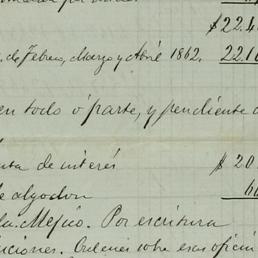 $22.4
de Febrero, Marzo y Abril 1862. 22.16
en todo ó parte, y pendiente
nta de interés $20
de algodon 60
la Mejico. Por escritura
ciones. Ordenes sobre esas oficin